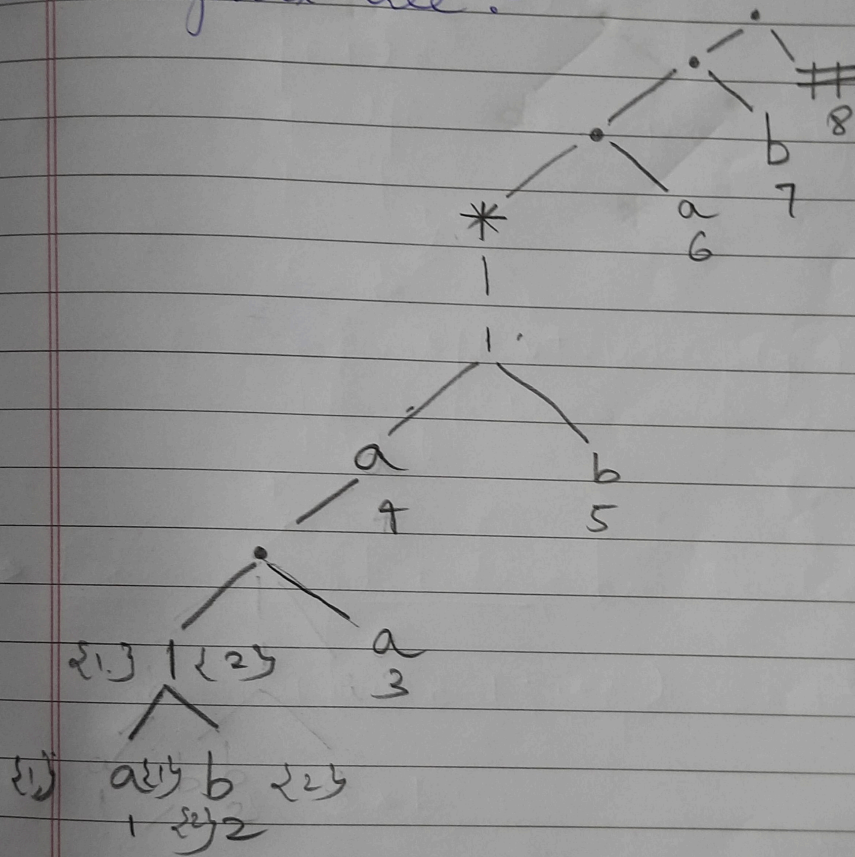 ##
8
b
7
*
a
6
|
|
a
b
4
5
a
3
{1.} | {2}
{1} a {1} b {2}
1 {2} 2